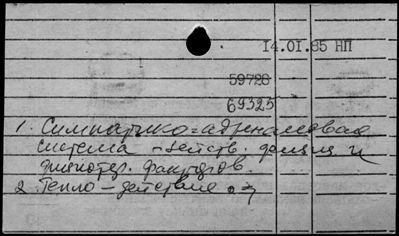 14.01.85 НП
59728
69325
1. Симпатико-адреналовая
система - действ. физич и
физиотер. факторов.
2. Тепло - действие